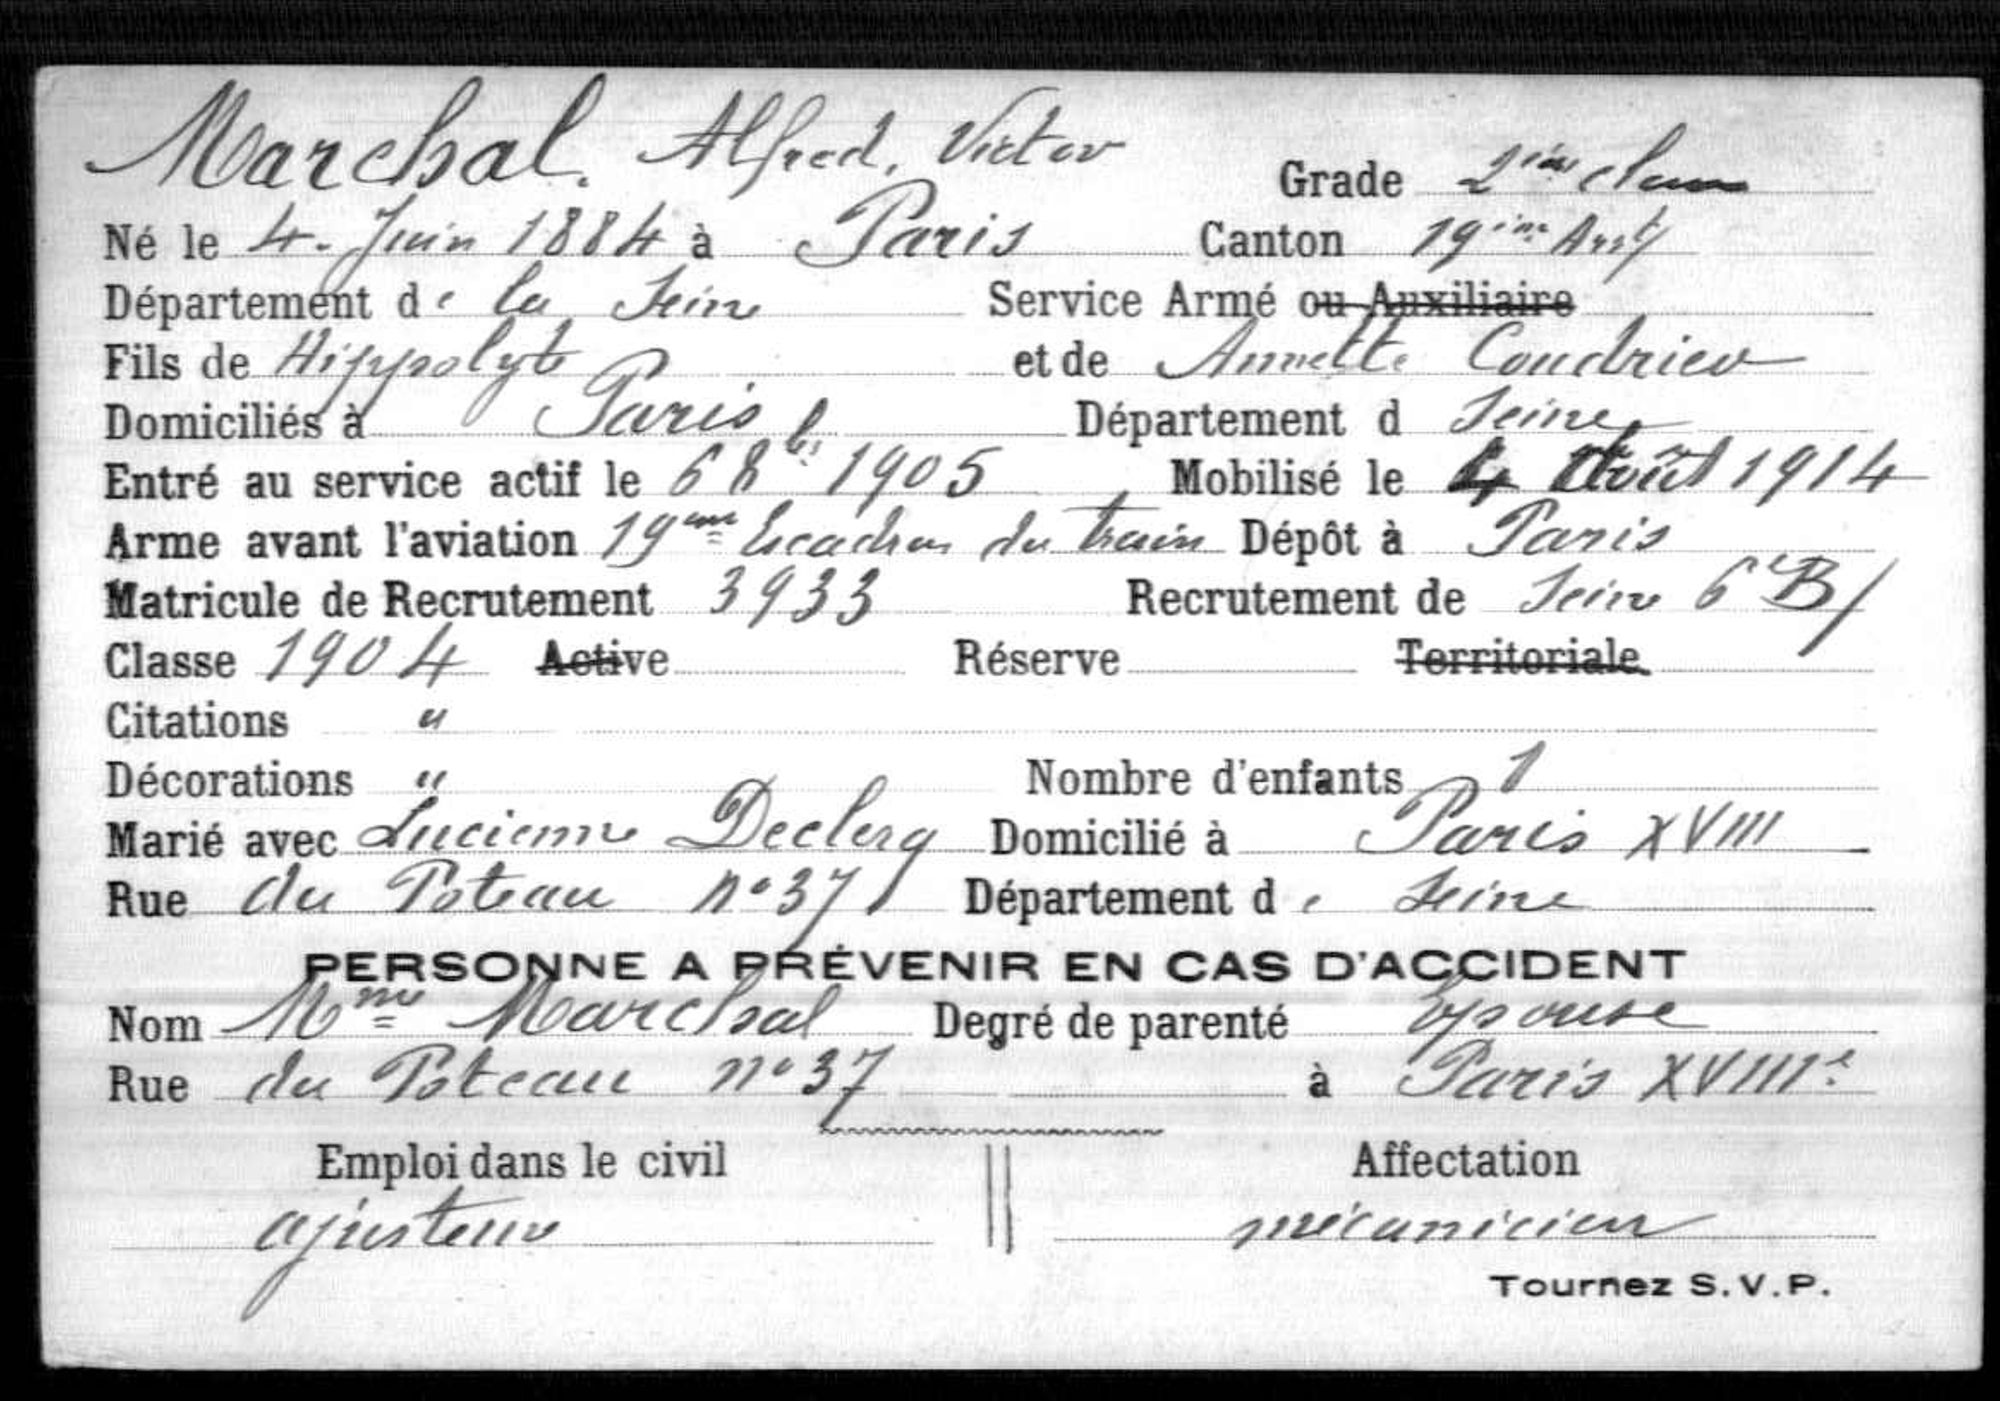 Marchal. Alfred, Victor
Grade 2ième classe
Né le 4. Juin 1884 à Paris Canton 19ième Arrt
Département de la Seine Service Armé ou Auxiliaire
Fils de Hippolyte et de Annette Coudrieu
Domiciliés à Paris Département d Seine
Entré au service actif le 6 8bre 1905 Mobilisé le 4 Août 1914
Arme avant l'aviation 19ème Escadron du train Dépôt à Paris
Matricule de Recrutement 3933 Recrutement de Seine 6e B/
Classe 1904 Active Réserve Territoriale
Citations "
Décorations " Nombre d'enfants 1
Marié avec Lucienne Declerq Domicilié à Paris XVIII
Rue du Poteau n° 37 Département de Seine
PERSONNE A PRÉVENIR EN CAS D'ACCIDENT
Nom Mme Marchal Degré de parenté Epouse
Rue du Poteau n° 37 à Paris XVIIIe
Emploi dans le civil Affectation
ajusteur mécanicien
Tournez S.V.P.